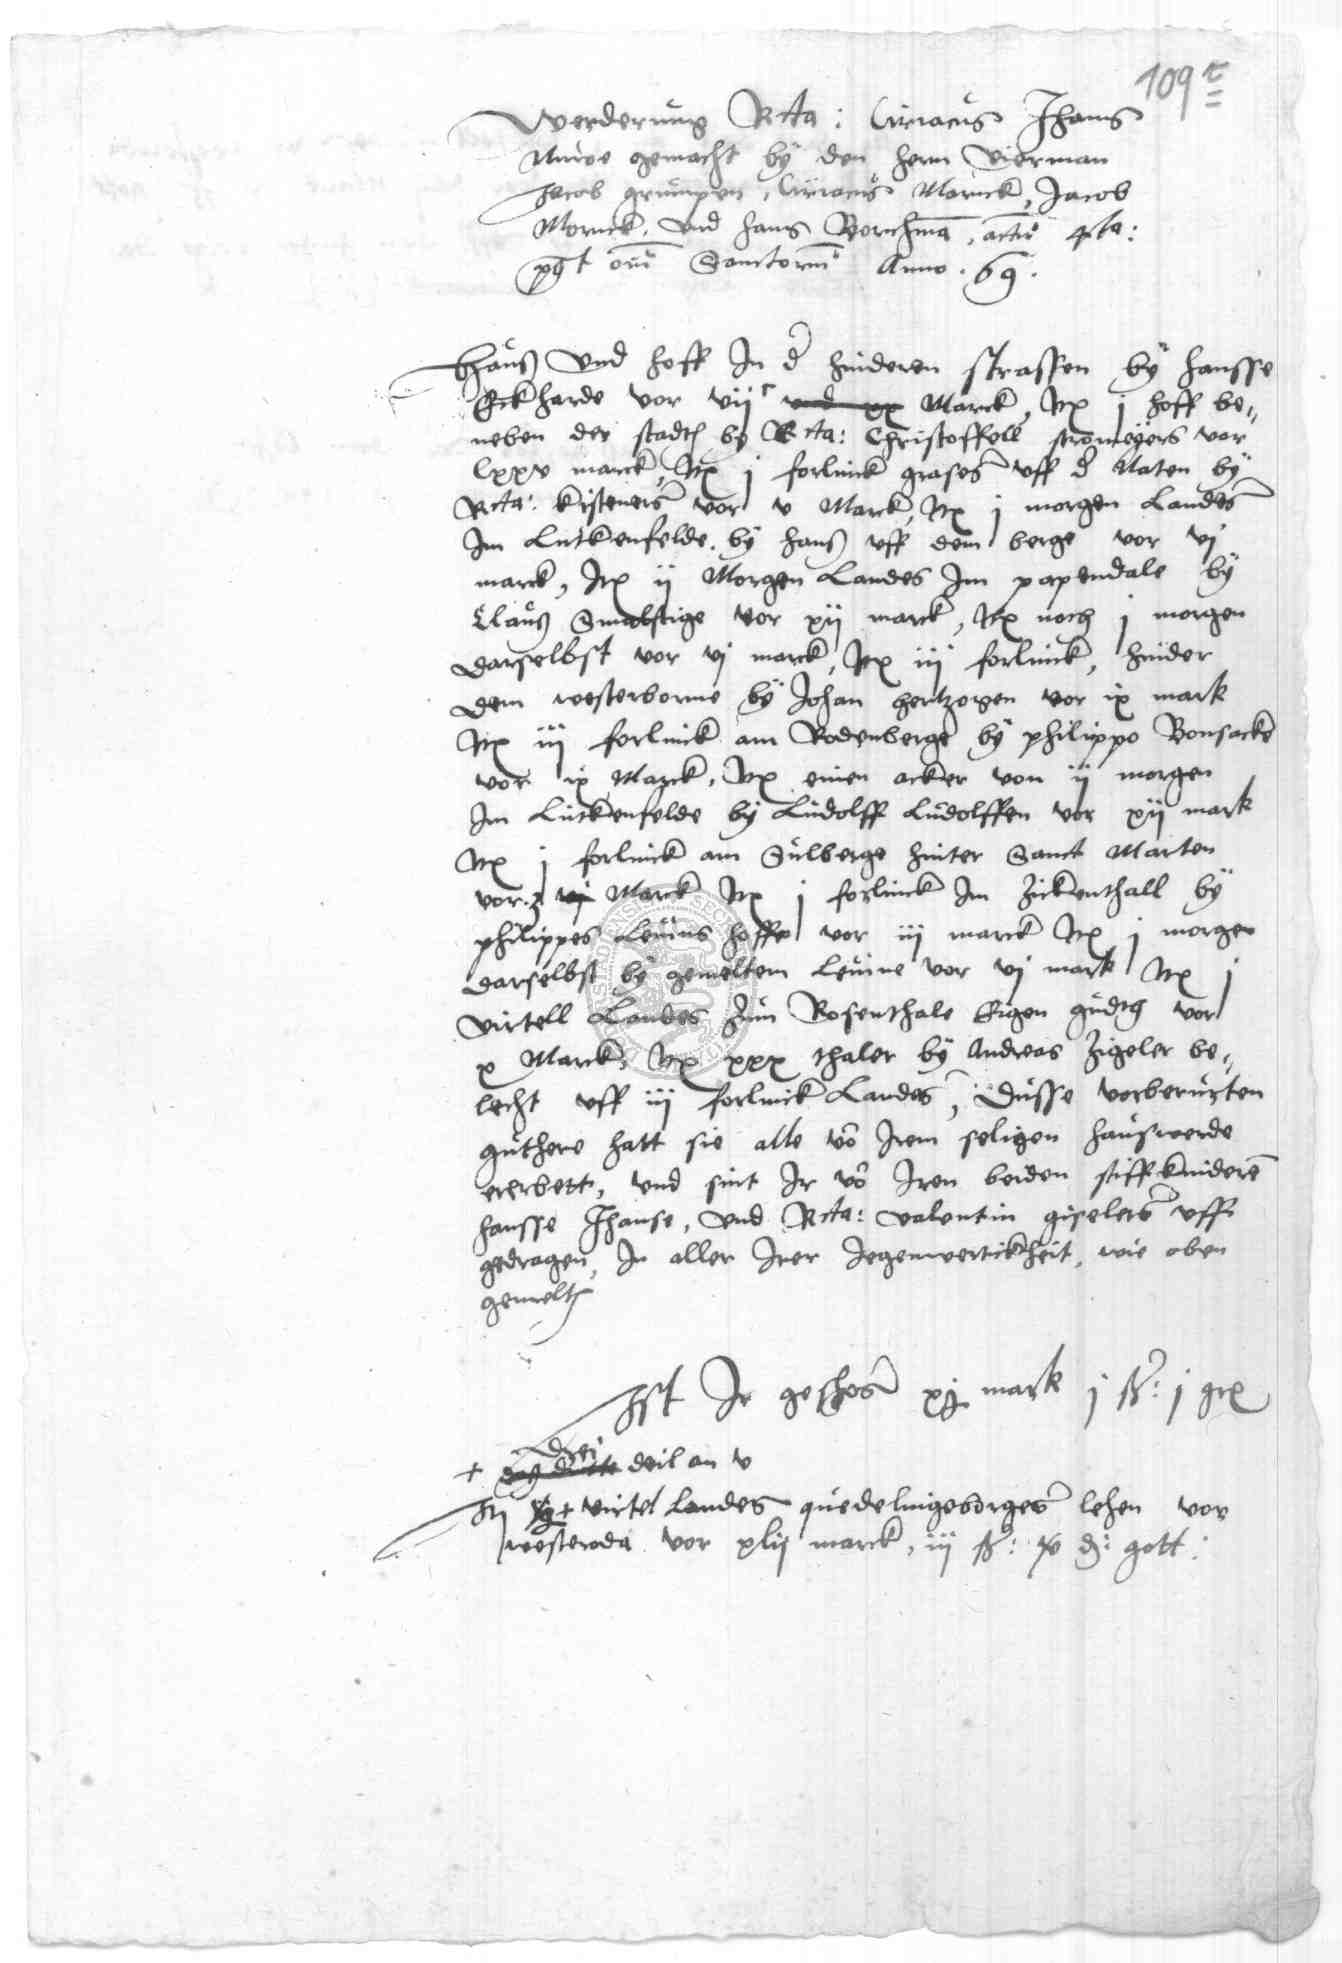 109 r
Werderung Rcta: Ciriacus Jhans
Anne gemacht by den hern Vierman
Jacob grumpen, Ciriacus Marnck, Jacob
Mornck, vnd hans Borchma, actu 4ta:
pst om Sanctorm Anno . 69 .
Hauß vnd hoff In d hinderen strassen by hansse
Eckharde vor vijc vnd xx Marck, Itx j hoff be„
neben der stadt by Rcta: Christoffell stromeyers vor
lxxv marck Itx j forlinck grases vff d Maten by
Rcta: kisteners vor v Marck, Itx j morgen Landes
Im Luckenfelde by hans vff dem berge vor vj
marck, Itx ij Morgen Landes Im papendale by
Clauß Smalstige vor xij marck, Itx noch j morgen
darselbst vor vj marck, Itx iij forlinck, hinder
dem westerborne by Johan hertzogen vor ix mark
Itx iij forlinck am Rodenberge by philippo Bonsacke
vor ix Marck, Itx einen acker von ij morgen
Im Luckenfelde by Ludolff Ludolffen vor xij mark
Itx j forlinck am Sulberge hinter Sanct Marten
vor 3 vj Marck Itx j forlinck Im Zickenthall by
philippes Leuins hoffe vor iij marck Itx j morgen
darselbst by gemeltem Leuine vor vj mark Itx j
virtell Landes zum Rosenthale Eigen gudth vor
x Marck, Itx xxx thaler by Andreas Zigeler be„
lecht vff iij forlinck Landes, Dusse vorberurten
guthere hatt sie alle vo Irem seligen hauswerde
ererbett, vnd sint Ir vo Iren beiden stiffkindere
hansse Jhanse, vnd Rcta: valentin giselers vff
gedragen, In aller Irer Jegenwertickheit, wie oben
gemelt
Ist Ir geschos xj mark j ß: j grx
drei
+ das dritte deil an v
Itx + virtel Landes quedelingeborges lehen vor
westeroda vor xlij marck, iij ß: d: gott: